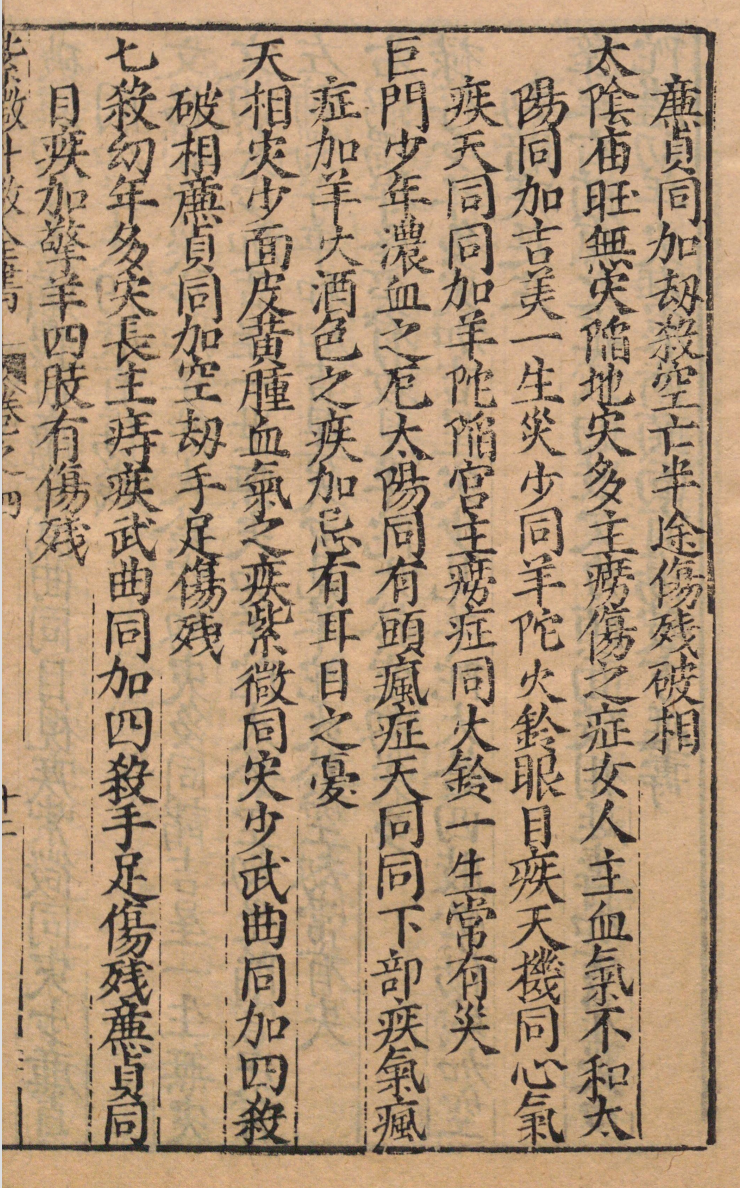 廉貞同加刼殺空亡半途傷残破相
太陰庙旺無灾陥地灾多主癆傷之症女人主血氣不和太
陽同加吉美一生災少同羊陀火鈴眼目疾天機同心氣
疾天同同加羊陀陥宫主癆症同火鈴一生常有災
巨門少年濃血之厄太陽同有頭瘋症天同同下部疾氣瘋
症加羊火酒色之疾加忌有耳目之憂
天相灾少面皮黄腫血氣之疾紫微同灾少武曲同加四殺
破相廉貞同加空刼手足傷残
七殺幼年多灾長主痔疾武曲同加四殺手足傷残廉貞同
目疾加擎羊四肢有傷残
紫微斗數全書 卷之四 十二